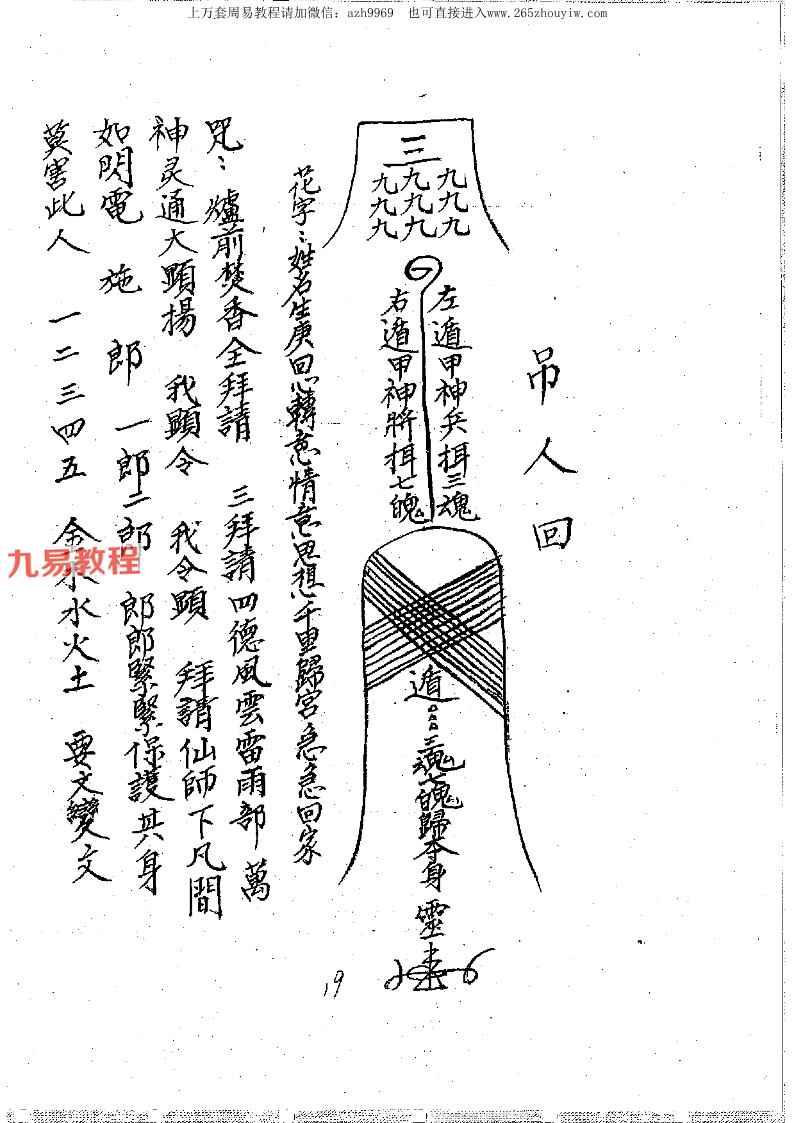 上万套周易教程请加微信：azh9969 也可直接进入www.265zhouyiw.com
吊人回
三
九九九
九九九
九九九
左遁甲神兵挕三魂
右遁甲神將挕七魄
遁
三魂七魄歸本身
靈
花字：姓名生庚回心轉意情意思想千里歸宮急急回家
咒：爐前焚香全拜請 三拜請四德風雲雷雨部 萬
神灵通大顕揚 我顕令 我令顕 拜請仙師下凡間
如閃電 施郎 一郎二郎 郎郎緊緊保護其身
莫害此人 一二三四五 金木水火土 要文變文
九易教程
19